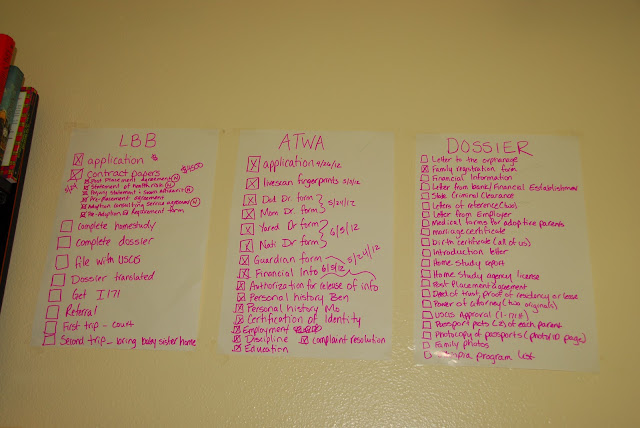 LBB
application $
contract papers $4500
Post Placement agreement (N)
Statement of health risk (N)
Agency Statement + Sworn Affidavit (N)
Pre-placement agreement
Adoption Consulting Service agreement (N)
Pre-Adoption Ed Requirement form
complete homestudy
complete dossier
file with USCIS
Dossier translated
Get I171
Referral
First trip - court
Second trip - bring baby sister home
ATWA
application 4/26/12
livescan fingerprints 5/3/12
Dad Dr. form
Mom Dr. form } 5/24/12
Yared Dr form
Nati Dr form } 6/5/12
Guardian form 5/24/12
Financial Info 6/5/12
Authorization for release of info
Personal history Ben
Personal history Mo
Certification of Identity
Employment
Discipline complaint resolution
Education
DOSSIER
Letter to the orphanage
Family registration form
Financial Information
Letter from bank/Financial Establishment
State Criminal Clearance
Letters of reference (two)
Letter from Employer
Medical forms for adoptive parents
marriage certificate
Birth certificate (all of us)
Introduction letter
Home study report
Home study agency license
Post Placement agreement
Deed of trust, proof of residency or lease
Power of attorney (two originals)
USCIS Approval (I-171H)
Passport pots (2) of each parent
Photocopy of passports (photo/ID page)
Family photos
program list